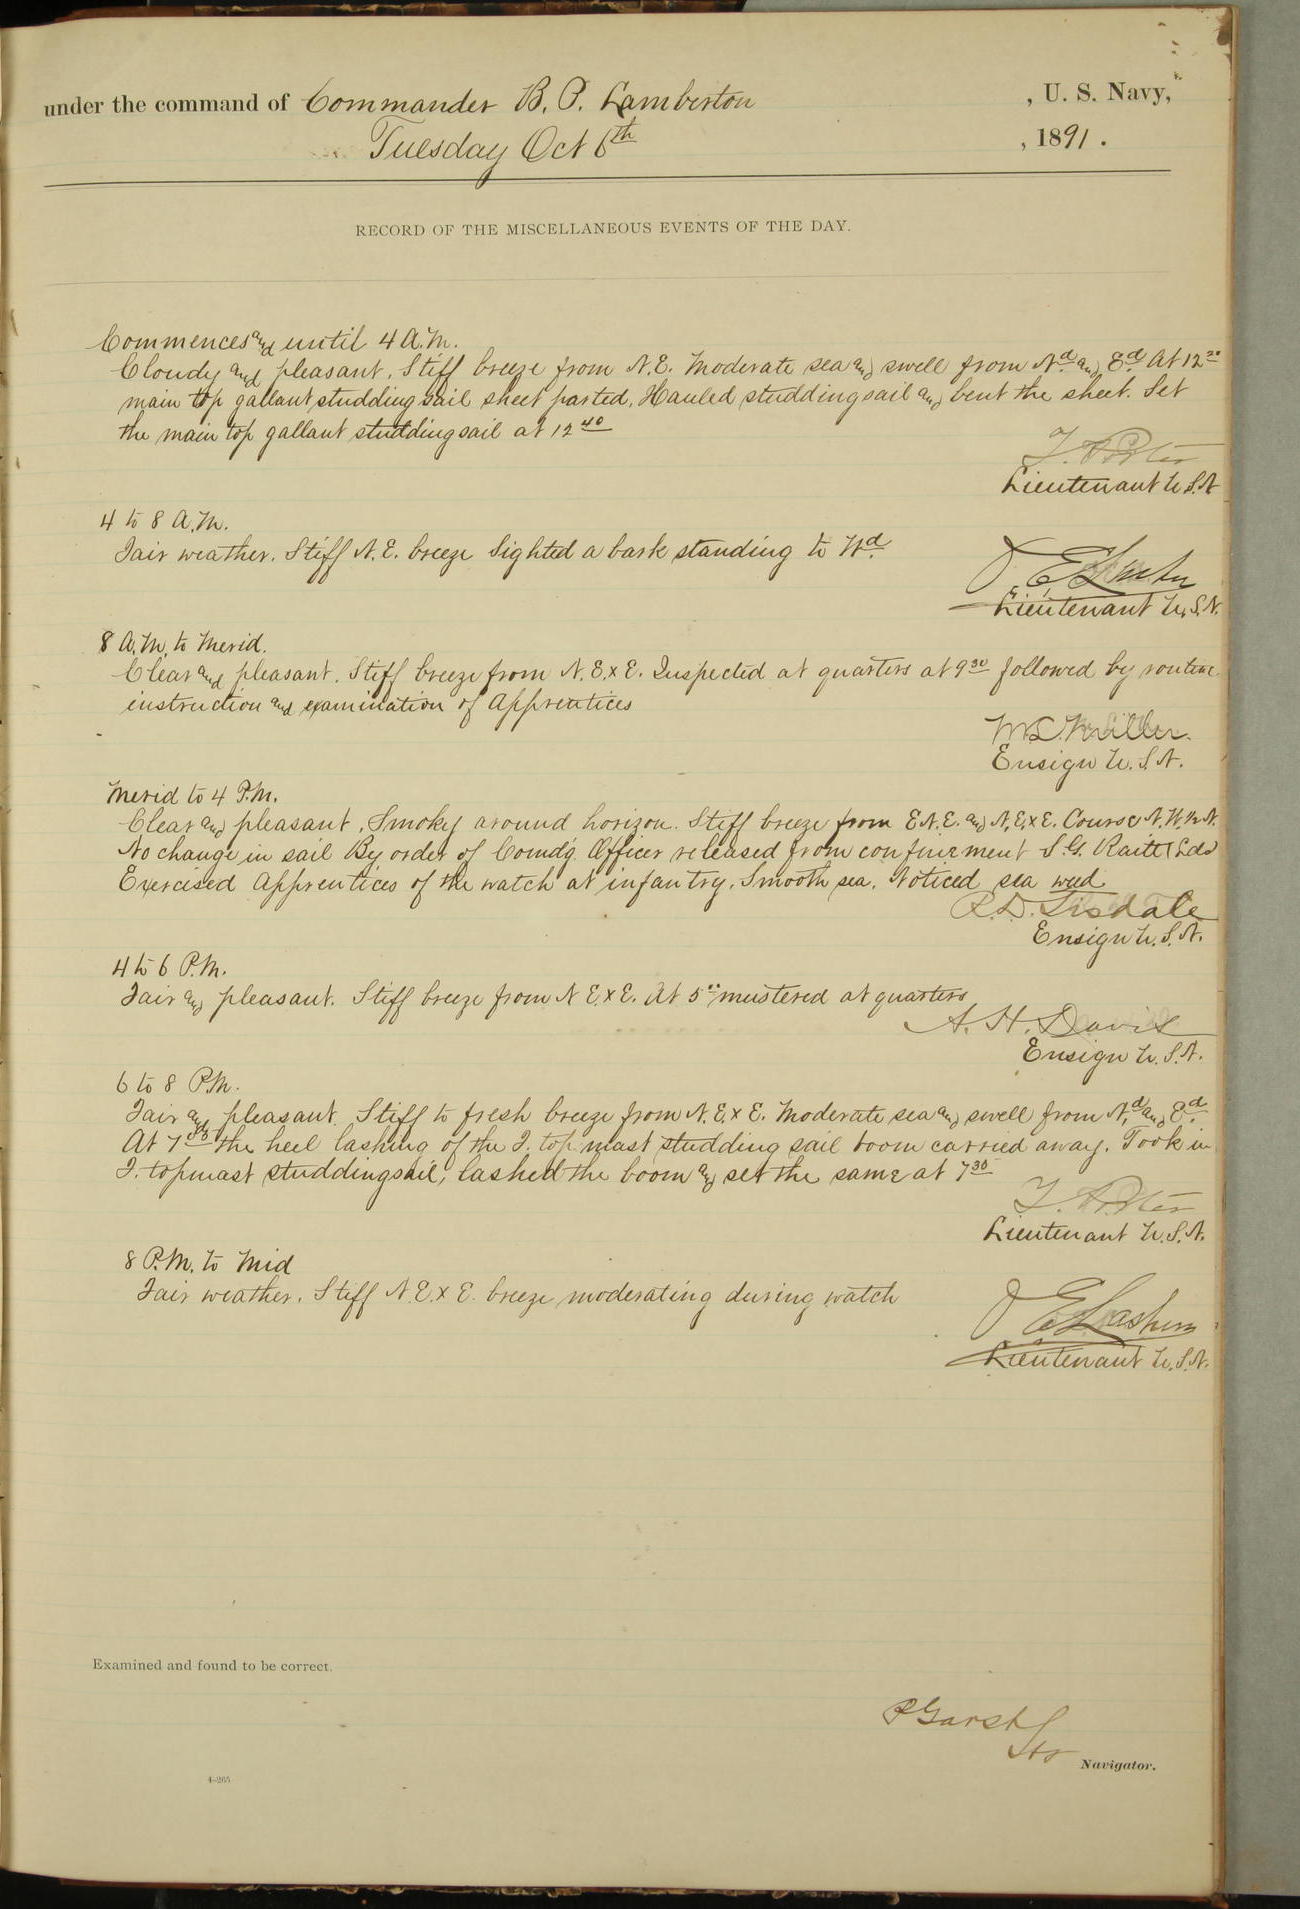 under the command of Commander B. P. Lamberton , U. S. Navy,
Tuesday Oct 6th , 1891.
RECORD OF THE MISCELLANEOUS EVENTS OF THE DAY.
Commences and until 4 A.M.
Cloudy and pleasant. Stiff breeze from N.E. Moderate sea and swell from Nd and Ed At 12 20
main top gallant studding sail sheet parted, Hauled studdingsail and bent the sheet. Set
the main top gallant studdingsail at 12 40
Lieutenant U.S.N
4 to 8 A.M.
Fair weather. Stiff N.E. breeze Sighted a bark standing to Wd.
Lieutenant U.S.N.
8 A.M. to Merid.
Clear and pleasant. Stiff breeze from N.E.x E. Inspected at quarters at 9 30 followed by routine
instruction and examination of Apprentices
Miller.
Ensign U.S.N.
Merid to 4 P.M.
Clear and pleasant, Smoky around horizon. Stiff breeze from E.N.E. and N.E.x E. Course N.W.½N.
No change in sail By order of Comd'g Officer released from confinement S.G. (Lds)
Exercised Apprentices of the watch at infantry. Smooth sea. Noticed sea weed
R.D. Tisdale
Ensign U.S.N.
4 to 6 P.M.
Fair and pleasant. Stiff breeze from N E.x E. At 5 00 mustered at quarters
A. H. Davis
Ensign U.S.N.
6 to 8 P.M.
Fair and pleasant. Stiff to fresh breeze from N.E.x E. Moderate sea and swell from Nd and Ed.
At 7 the heel lashing of the F. top mast studding sail boom carried away. Took in
F. topmast studdingsail, lashed the boom and set the same at 7 30
Lieutenant U.S.N.
8 P.M. to Mid
Fair weather. Stiff N.E.x E. breeze moderating during watch
Lieutenant U.S.N.
Examined and found to be correct.
P Garst
Lt
Navigator.
4-265